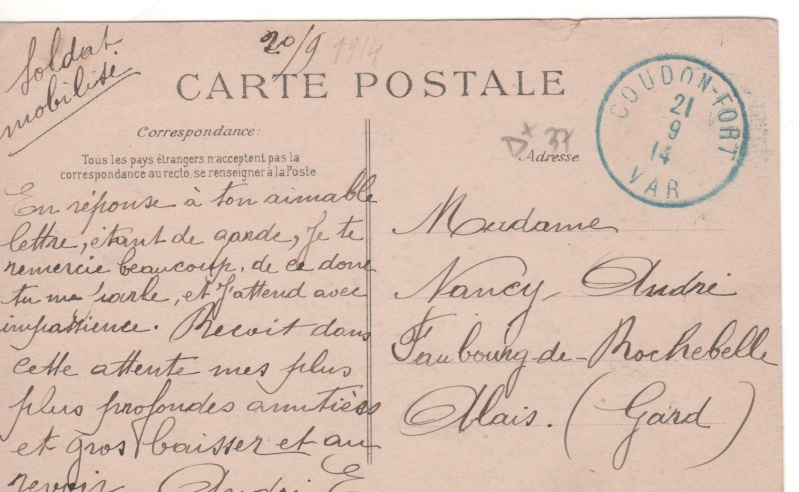 Soldat
mobilisé
20/9 1914
CARTE POSTALE
COUDON-FORT
21
9
14
VAR
Correspondance:
Tous les pays étrangers n'acceptent pas la
correspondance au recto, se renseigner à la Poste
En réponse à ton aimable
lettre, étant de garde, Je te
remercie beaucoup, de ce dont
tu me parle, et J'attend avec
impattience. Recoit dans
cette attente mes plus
plus profondes amitiées
et gros baisser et au
revoir André E
37
Adresse
Madame
Nancy-André
Faubourg-de-Rochebelle
Alais. (Gard)